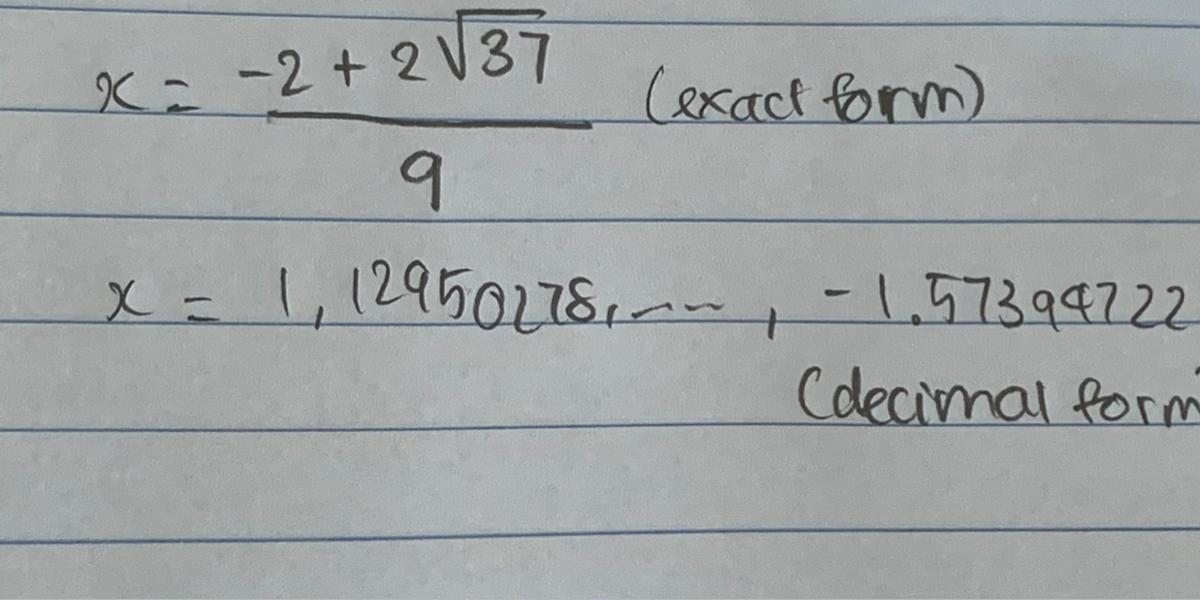 x = -2 + 2√37 (exact form)
9
x = 1,12950278,---- , -1.57394722
(decimal form